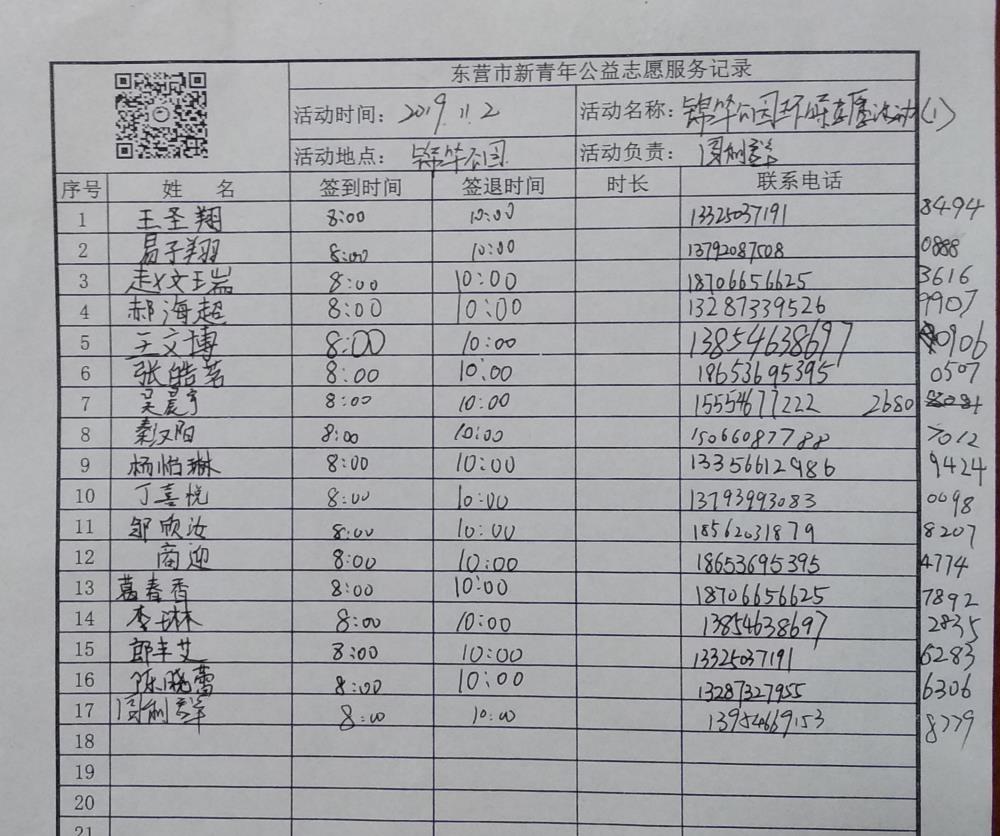 东营市新青年公益志愿服务记录
活动时间: 2019.11.2 活动名称: 锦华公园环保志愿活动(1)
活动地点: 锦华公园 活动负责: 周利群
序号 姓名 签到时间 签退时间 时长 联系电话
1 王圣翔 8:00 10:00 13325037191 8494
2 易子翔 8:00 10:00 13792087508 0888
3 赵文瑞 8:00 10:00 18706656625 3616
4 郝海超 8:00 10:00 13287339526 9907
5 王文博 8:00 10:00 13854638697 0906
6 张皓茗 8:00 10:00 18653695395 0507
7 吴晨宇 8:00 10:00 15554677222 2680
8 秦汉阳 8:00 10:00 15066087788 7012
9 杨怡琳 8:00 10:00 13356612986 9424
10 丁喜悦 8:00 10:00 13793993083 0098
11 邹欣汝 8:00 10:00 18562031879 8207
12 商迎 8:00 10:00 18653695395 4774
13 葛春香 8:00 10:00 18706656625 7892
14 李琳 8:00 10:00 13854638697 2835
15 郎丰艾 8:00 10:00 13325037191 6283
16 陈晓蕾 8:00 10:00 13287327955 6306
17 周利群 8:00 10:00 13954669153 8779
18
19
20
21